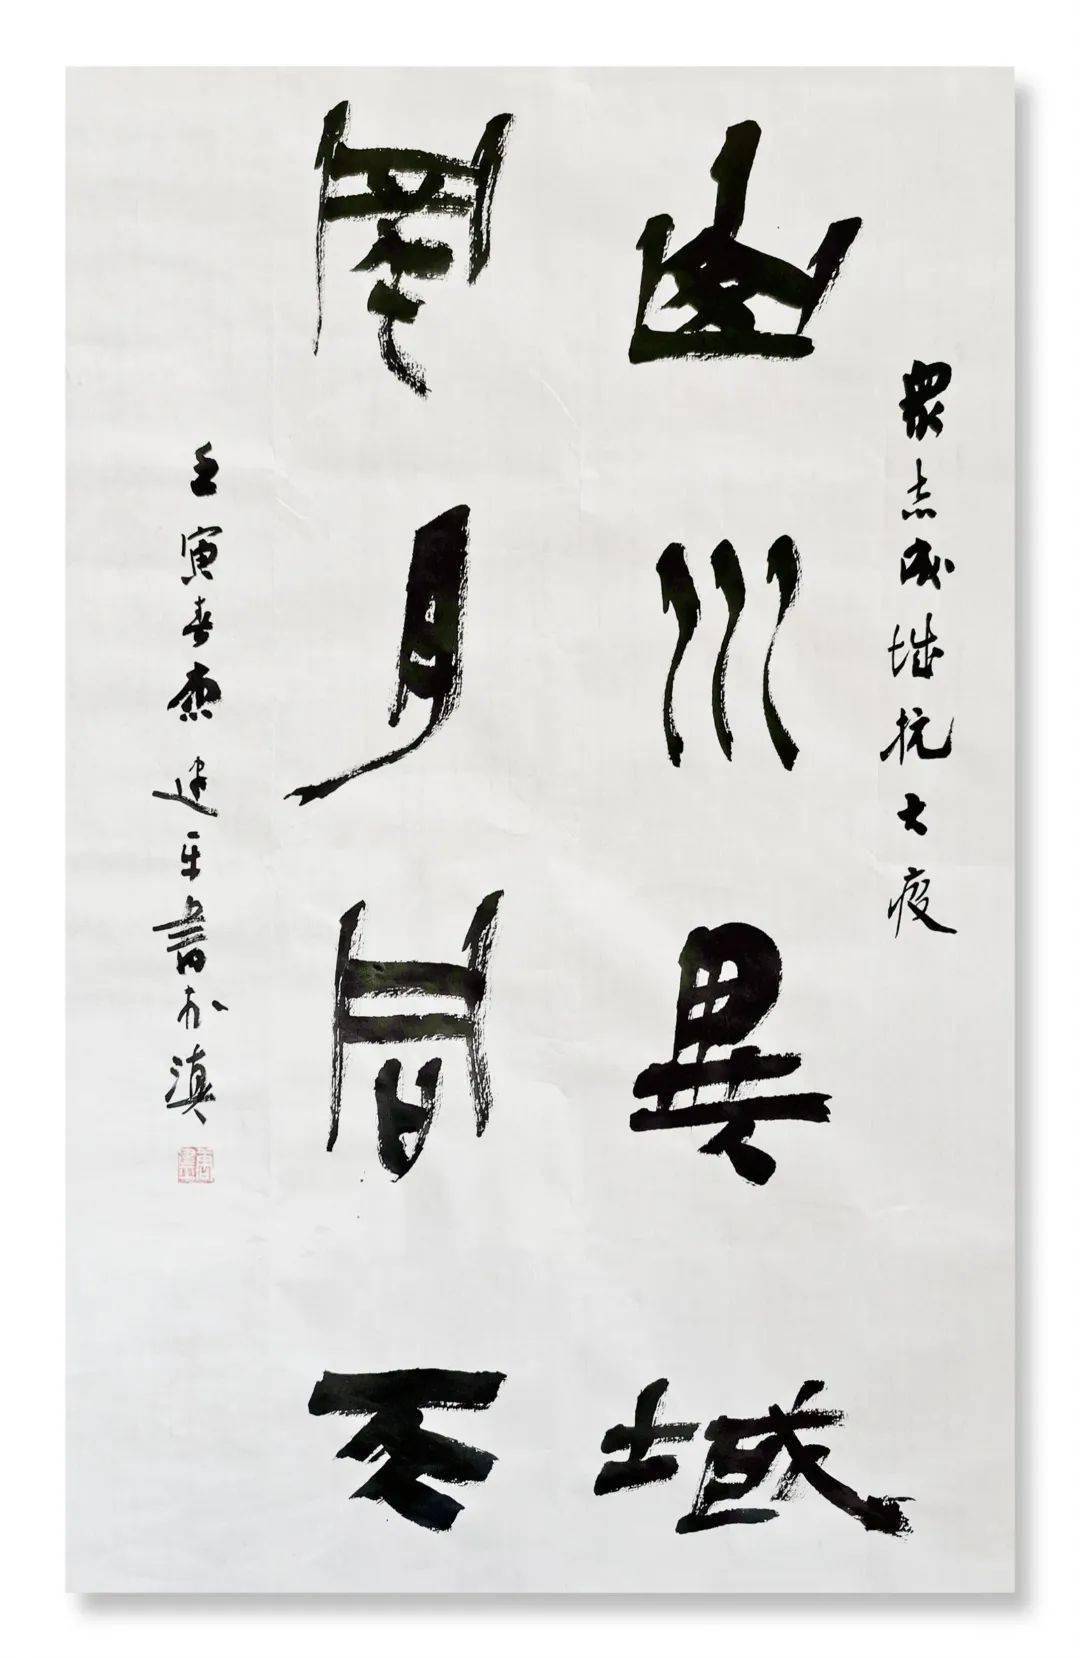 眾志成城抗大疫
山川異域
風月同天
壬寅春唐建平書於滇